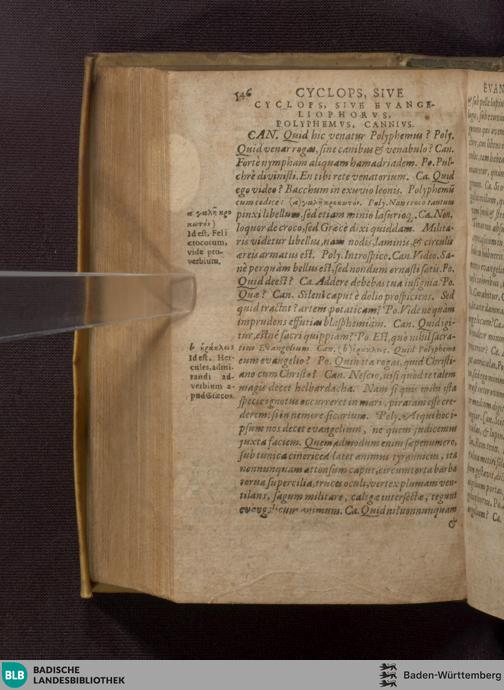 546
CYCLOPS, SIVE
CYCLOPS, SIVE EVANGE-
LIOPHORVS,
POLYPHEMVS, CANNIVS.
CAN. Quid hic venatur Polyphemus? Poly.
Quid venar rogas, sine canibus & venabulo? Can.
Forte nympham aliquam hamadriadem. Po. Pul-
chrè divinisti. En tibi rete venatorium. Ca. Quid
ego video? Bacchum in exuvio leonis. Polyphemũ
cum codice: (a) γαλῆ κροκωτόν. Poly. Non croco tantum
pinxi libellum, sed etiam minio
loquor de croco, sed Græcè dixi quiddam. Milita-
ris videtur libellus, nam nodis, laminis, & circulis
æreis armatus est. Poly. Introspice. Can. Video. Sa-
nè perquàm bellus est, sed nondum ornasti satis. Po.
Quid deest? Ca. Addere debebas tua insignia. Po.
Quæ? Can. Sileni caput è dolio prospiciens. Sed
quid tractat? artem potaticam? Po. Vide ne quam
imprudens effutias blasphemiam. Can. Quid igi-
tur, estnè sacri quippiam? Po. Est, quo nihil sacra-
tius Evangelium. Can. (b) Quid Polyphemo
cum evangelio? Po. Quin ita rogas, quid Christi-
ano cum Christo? Can. Nescio, nisi quod te talem
magis decet helbarda, ha. Nam si quis mihi ista
specie ignotus occurreret in mari, piratam esse cre-
derem: si in nemore sicarium. Poly. Atqui hoc i-
psum nos docet evangelium, ne quem judicemus
juxta faciem. Quemadmodum enim sæpenumero,
sub tunica cinericea latet animus tyrannicus, ita
nonnunquam attonsum caput, circumtorta barba
torva supercilia, truces oculi, vertex plumam ven-
tilans, sagum militare, caligæ intersectæ, tegunt
evangelicum animum. Ca. Quid ni? nonnunquam
&
a γαλῆ κρο
κωτόν)
Id est, Feli
crocotum,
vide pro-
verbium.
b
Id est. Her-
cules, admi-
randi ad-
verbium a-
pud Græcos.
EVAN
BLB BADISCHE
LANDESBIBLIOTHEK
Baden-Württemberg